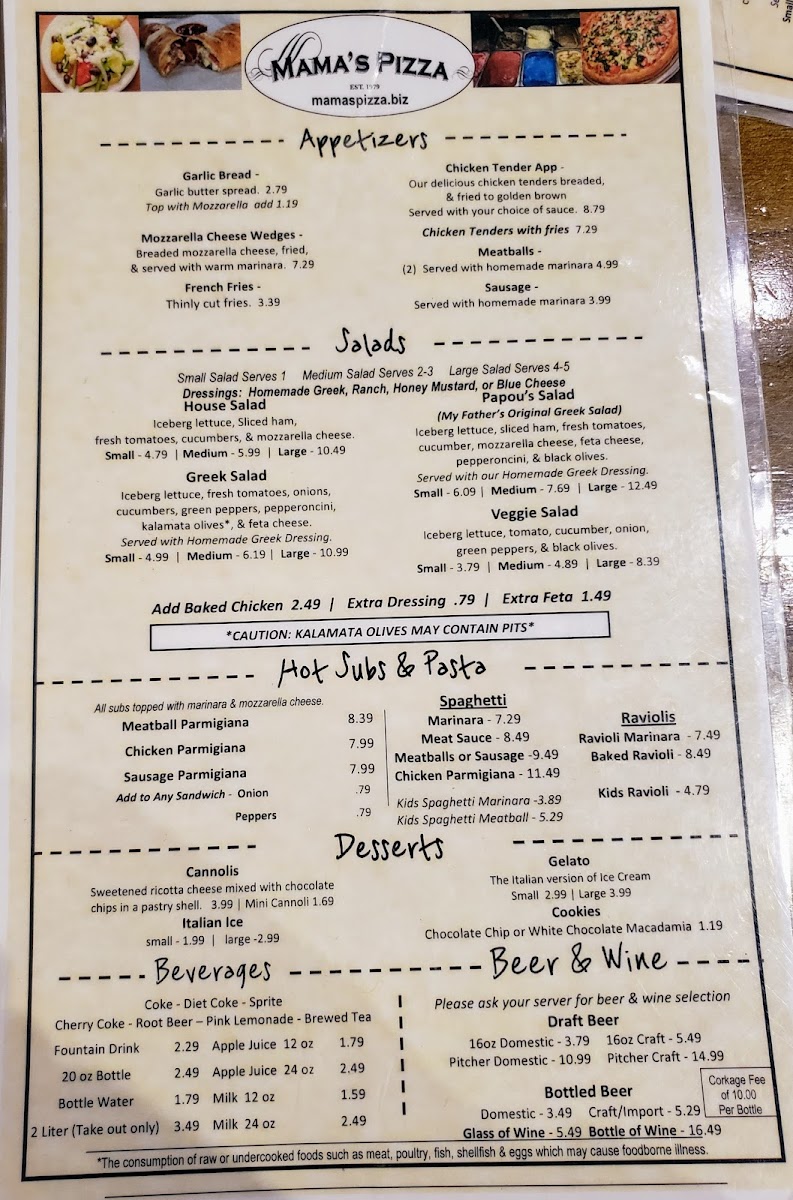 MAMA'S PIZZA
EST. 1979
mamaspizza.biz
Appetizers
Garlic Bread -
Garlic butter spread. 2.79
Top with Mozzarella add 1.19
Mozzarella Cheese Wedges -
Breaded mozzarella cheese, fried,
& served with warm marinara. 7.29
French Fries -
Thinly cut fries. 3.39
Chicken Tender App -
Our delicious chicken tenders breaded,
& fried to golden brown
Served with your choice of sauce. 8.79
Chicken Tenders with fries 7.29
Meatballs -
(2) Served with homemade marinara 4.99
Sausage -
Served with homemade marinara 3.99
Salads
Small Salad Serves 1 Medium Salad Serves 2-3 Large Salad Serves 4-5
Dressings: Homemade Greek, Ranch, Honey Mustard, or Blue Cheese
House Salad
Iceberg lettuce, Sliced ham,
fresh tomatoes, cucumbers, & mozzarella cheese.
Small - 4.79 | Medium - 5.99 | Large - 10.49
Greek Salad
Iceberg lettuce, fresh tomatoes, onions,
cucumbers, green peppers, pepperoncini,
kalamata olives*, & feta cheese.
Served with Homemade Greek Dressing.
Small - 4.99 | Medium - 6.19 | Large - 10.99
Papou's Salad
(My Father's Original Greek Salad)
Iceberg lettuce, sliced ham, fresh tomatoes,
cucumber, mozzarella cheese, feta cheese,
pepperoncini, & black olives.
Served with our Homemade Greek Dressing.
Small - 6.09 | Medium - 7.69 | Large - 12.49
Veggie Salad
Iceberg lettuce, tomato, cucumber, onion,
green peppers, & black olives.
Small - 3.79 | Medium - 4.89 | Large - 8.39
Add Baked Chicken 2.49 | Extra Dressing .79 | Extra Feta 1.49
*CAUTION: KALAMATA OLIVES MAY CONTAIN PITS*
Hot Subs & Pasta
All subs topped with marinara & mozzarella cheese.
Meatball Parmigiana 8.39
Chicken Parmigiana 7.99
Sausage Parmigiana 7.99
Add to Any Sandwich - Onion .79
Peppers .79
Spaghetti
Marinara - 7.29
Meat Sauce - 8.49
Meatballs or Sausage -9.49
Chicken Parmigiana - 11.49
Kids Spaghetti Marinara -3.89
Kids Spaghetti Meatball - 5.29
Raviolis
Ravioli Marinara - 7.49
Baked Ravioli - 8.49
Kids Ravioli - 4.79
Desserts
Cannolis
Sweetened ricotta cheese mixed with chocolate
chips in a pastry shell. 3.99 | Mini Cannoli 1.69
Italian Ice
small - 1.99 | large -2.99
Gelato
The Italian version of Ice Cream
Small 2.99 | Large 3.99
Cookies
Chocolate Chip or White Chocolate Macadamia 1.19
Beverages
Coke - Diet Coke - Sprite
Cherry Coke - Root Beer – Pink Lemonade - Brewed Tea
Fountain Drink 2.29 Apple Juice 12 oz 1.79
20 oz Bottle 2.49 Apple Juice 24 oz 2.49
Bottle Water 1.79 Milk 12 oz 1.59
2 Liter (Take out only) 3.49 Milk 24 oz 2.49
Beer & Wine
Please ask your server for beer & wine selection
Draft Beer
16oz Domestic - 3.79 16oz Craft - 5.49
Pitcher Domestic - 10.99 Pitcher Craft - 14.99
Bottled Beer
Domestic - 3.49 Craft/Import - 5.29
Glass of Wine - 5.49 Bottle of Wine - 16.49
Corkage Fee
of 10.00
Per Bottle
*The consumption of raw or undercooked foods such as meat, poultry, fish, shellfish & eggs which may cause foodborne illness.